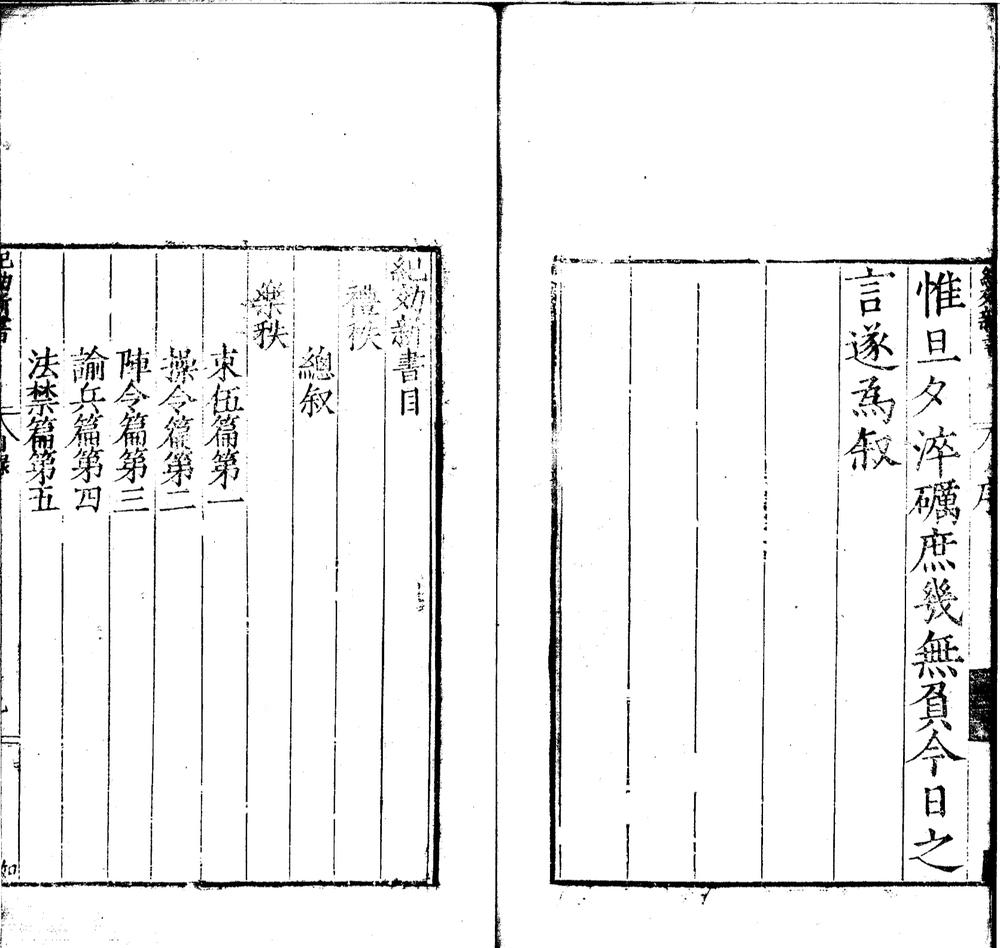 惟旦夕淬礪庶幾無負今日之
言遂爲叙
紀効新書目
禮秩
總叙
樂秩
束伍篇第一
操令篇第二
陣令篇第三
諭兵篇第四
法禁篇第五